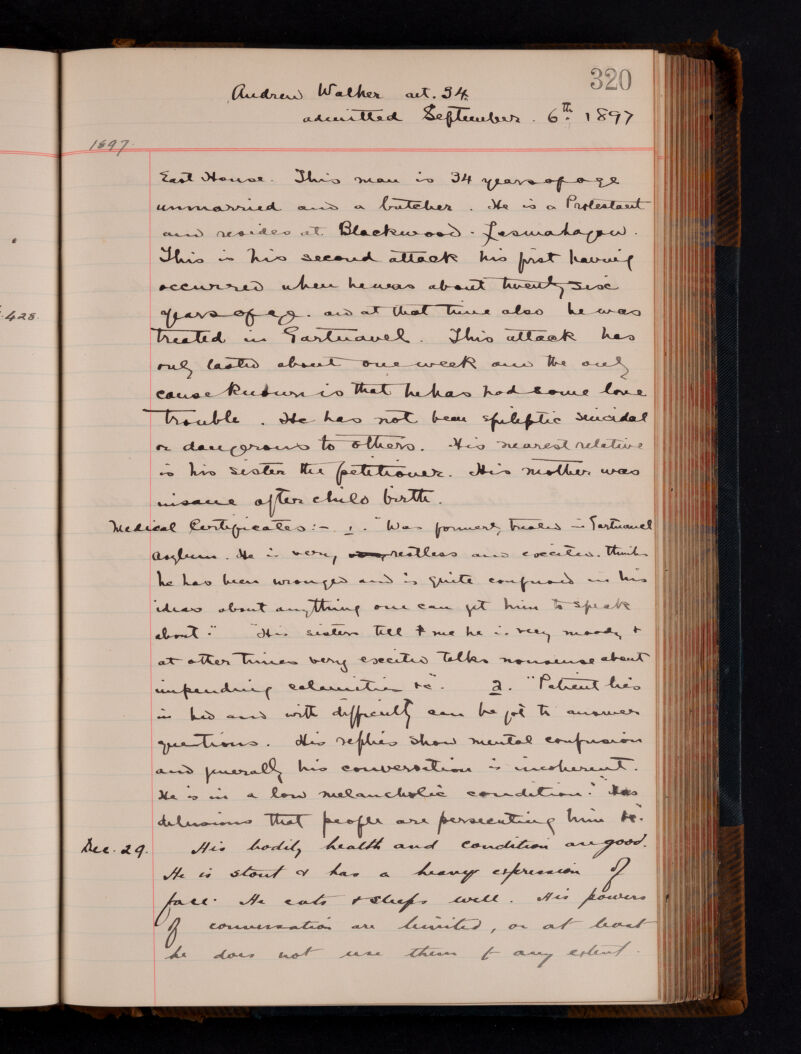 320
Andrew Walker aet. 34.
admitted September 6th. 1897
1897.
East House. This man is 34 years of age
unmarried and a butcher. He is a Protestant
and resides at Blackwood. Lesmahagow.
This is his second attack his first having
occurred when he was about twenty sixe
years of age. and at that time also he was
428.
treated in Gartnavel. This attack has
only lasted about one week and the only
cause known is that he has had some love
trouble. He has not been epileptic suicidal
or dangerous to others. His nearest relative
is his sister the petitioner. His mother was
insane after child birth.
Medical Certificates:- 1. "Was formerly treated in Gartnavel
Asylum. He is very, restless and excited. thinks
he has been wronged and is quite confused in his
ideas about anything one can get him to speak
about." "His sisters tell me he is very moody &
at other times very excited talks nonsense about
impending calamities &c". 2. "Patient lies
in bed and with difficulty can be got to answer
questions. His replies show mental confusion
and generally his conversation is incoherent.
He is in a low melancholic condition." "Has
delusions that people are persecuting him &c."
Dec. 29. His bodily health and condition are good.
He is stout & has a heavy expression of
face. He eats & sleeps well. His powers
of conversation are limited, or at least
he does not use them to any extent.